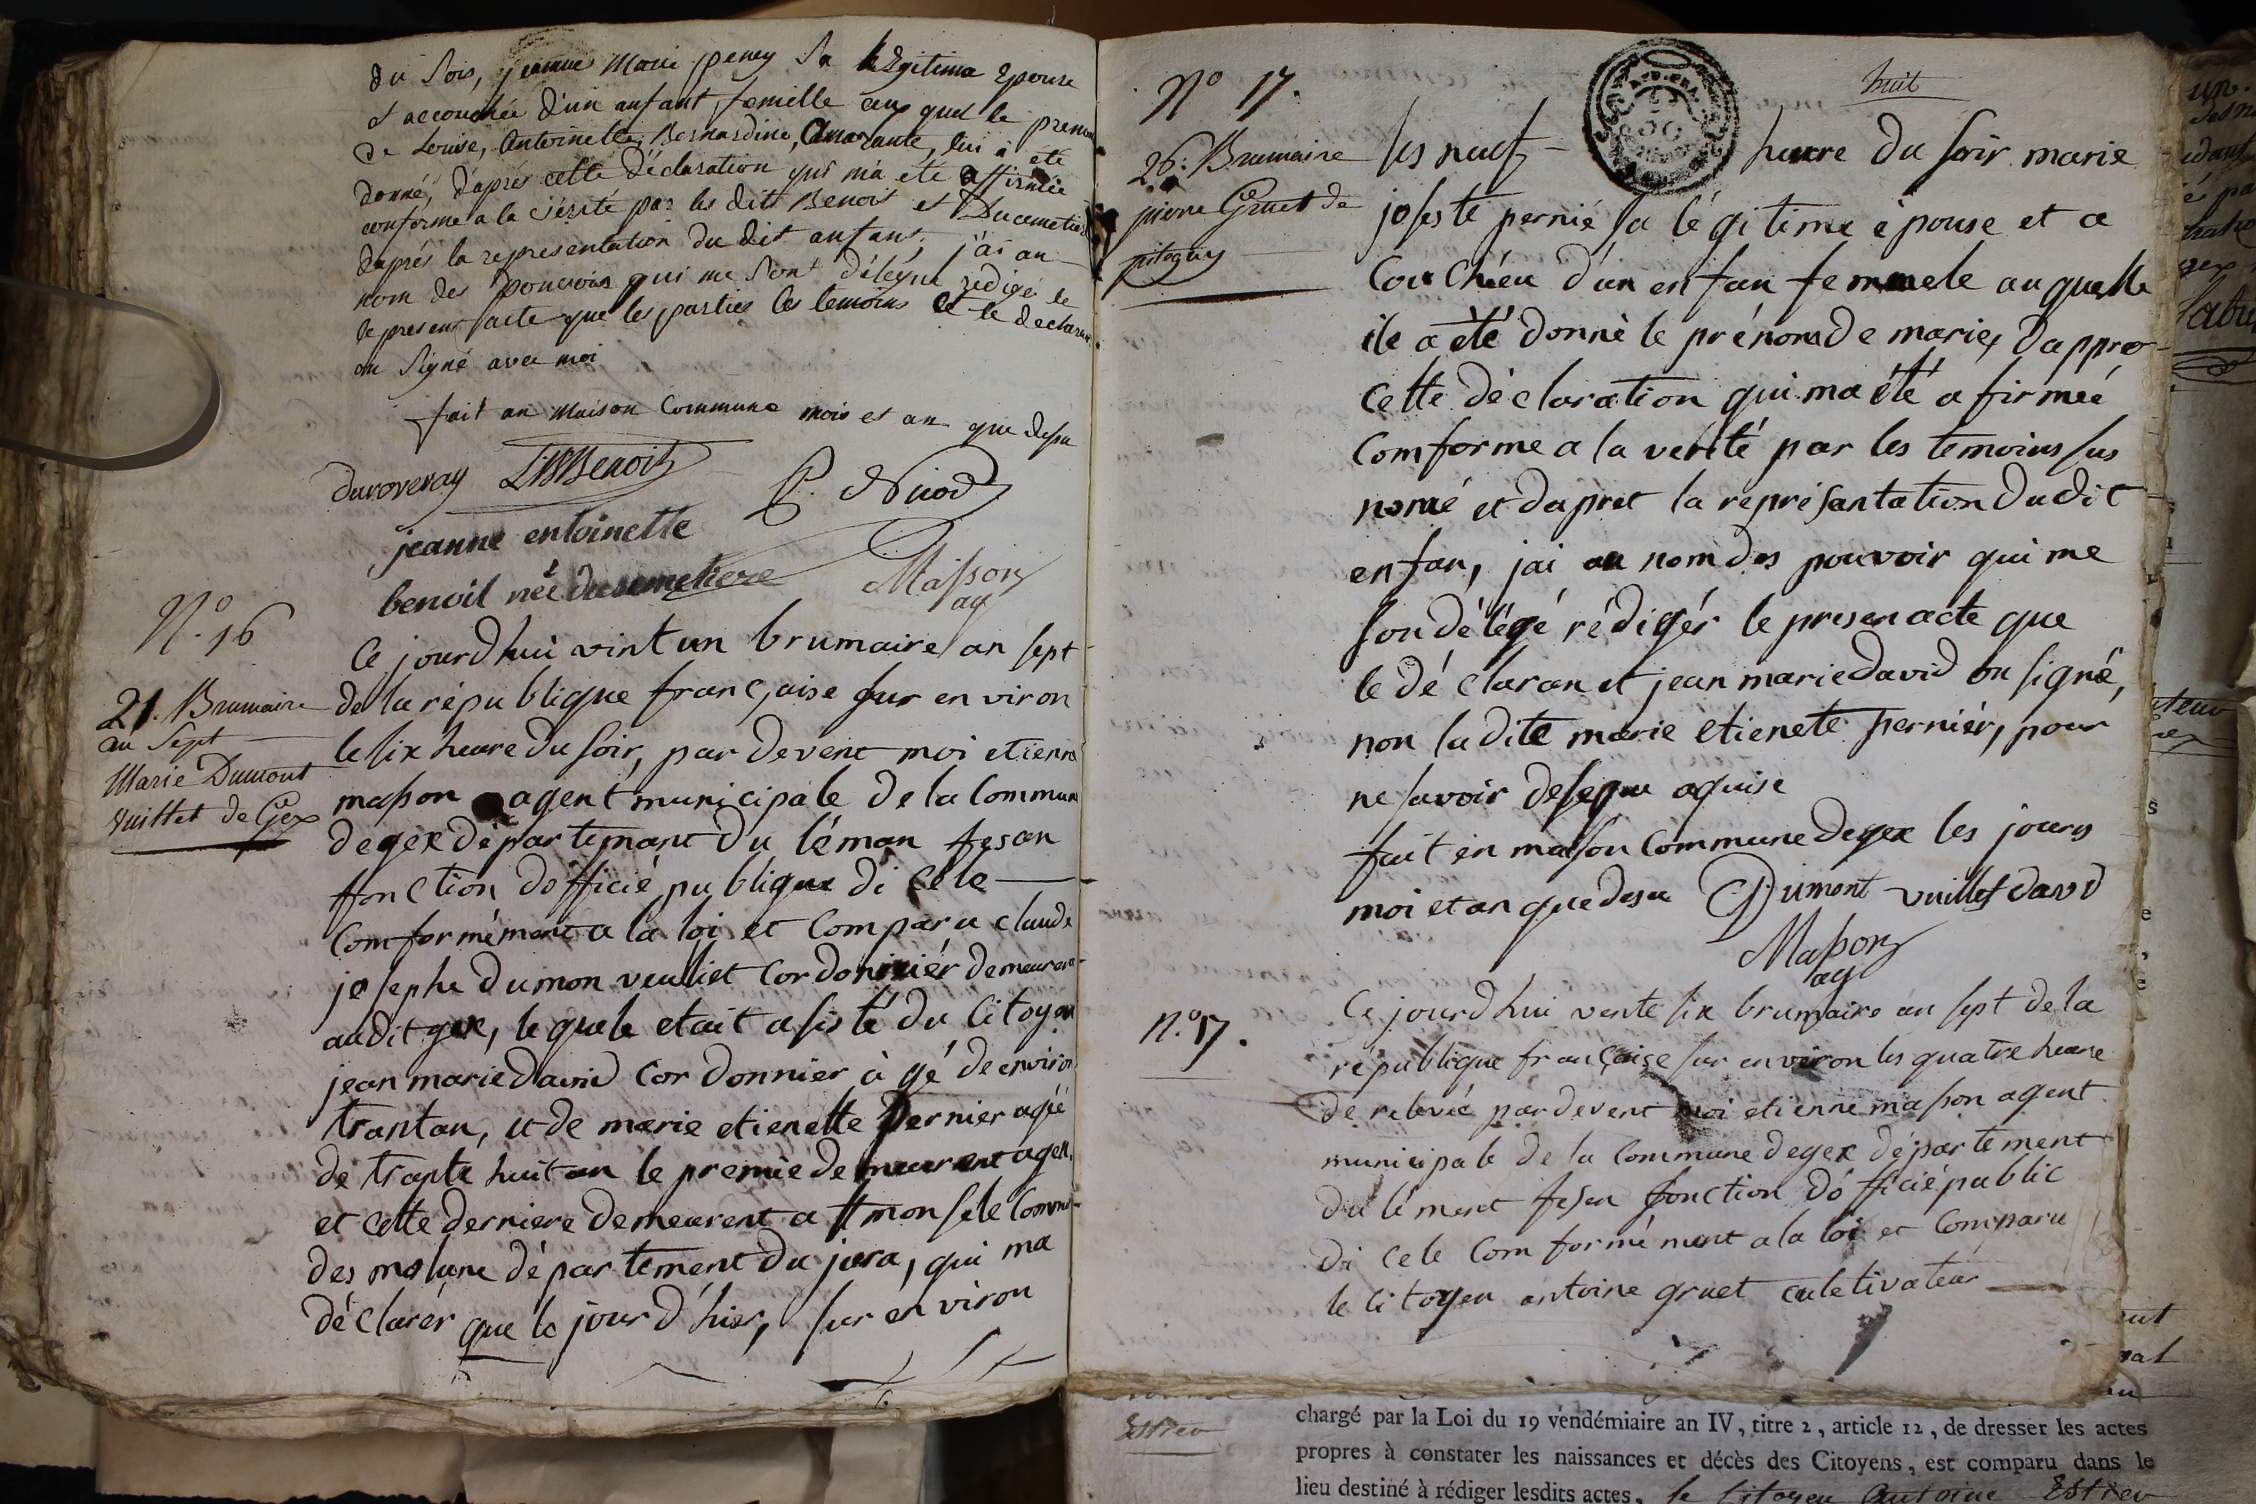 du soir, jeanne Marie peney Sa legitime Epouse
et accouchée d'un enfant femelle au quel le prenom
de Louise, Antoinette, Bernardine, Amarante, lui a été
donné, d'après cette déclaration qui m'a été affirmée
conforme a la vérité par les dits Benoit et Ducemetiere
daprès la representation du dit enfant, j'ai au
nom des pouvoirs qui me sont délégué rédigé le
le present acte que les parties les temoins et le declarant
on Signé avec moi
fait an maison Commune mois et an que dessu
duroveray Benoit P. Nicod
jeanne entoinette
benoil née dusemetiere Masson
ag
N.º 16
21. Brumaire
an Sept
Marie Dumont
vuillet de Gex
Ce jourdhui vint un brumaire an sept
de la république française sur en viron
le six heure du soir, par devent moi etienne
masson agent municipale de la Commune
de gex dépar temant du léman fesan
fonction dofficié publique di cele
Comformément a la loi et Comparu claude
josephe dumon veuliet Cordonniér demeurent
audit gex, le quele etait asisté du Citoyen
jean marie david Cordonnier à gé de environ
trantan, et de marie etienette Pernier agée
de trante huit an le premié demeurent a gex,
et cette derniere demeurent a mon sele Commune
des molune département du jura, qui ma
déclarér que le jour d'hier, sur en viron
huit
Nº 17.
26. Brumaire
pierre Gruet de
pitegny
les neuf heure du soir marie
joseste pernié sa légitime épouse et a
Couchéeu d'un enfan femmele au quelle
ile a été donné le prénom de marie, dappres
cette déclaration qui ma été a firmée
Comforme a la verité par les temoins sus
nomé et daprest la représantation du dit
enfan, jai au nom des pouvoir qui me
son délégé rédigér le presen acte que
le dé claran et jean marie david on signé,
non ladite marie etienete Perniér, pour
ne savoir de seque aquise
fait en maison Commune de gex les jours
moi et an que desu Dumont vuillet david
Masson
ag
n.º 17.
Ce jourdhui vente six brumaire an sept de la
république française sur en viron les quatre heure
de relevée par devent moi etienne masson agent
municipale de la Commune de gex département
du lément fesan fonction dófficié public
di cele Com formément a la loi et Comparu
le Citoyen antoine gruet culetivateur
Estreu
chargé par la Loi du 19 vendémiaire an IV, titre 2, article 12, de dresser les actes
propres à constater les naissances et décès des Citoyens, est comparu dans le
lieu destiné à rédiger lesdits actes, le Citoyen Antoine Estreu